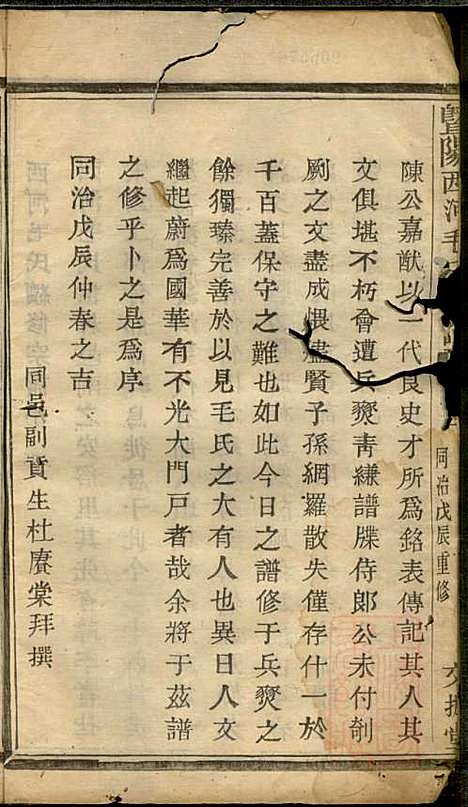 暨陽西河毛氏
同治戊辰重修
陳公嘉猷以一代良史才所為銘表傳記其人其
文俱堪不朽會遭兵燹靑縑譜牒侍郎公未付剞
劂之文盡成煨燼賢子孫網羅散失僅存什一於
千百蓋保守之難也如此今日之譜修于兵燹之
餘獨臻完善於以見毛氏之大有人也異日人文
繼起蔚為國華有不光大門戸者哉余將于茲譜
之修乎卜之是為序
同治戊辰仲春之吉
同邑副貢生杜賡棠拜撰